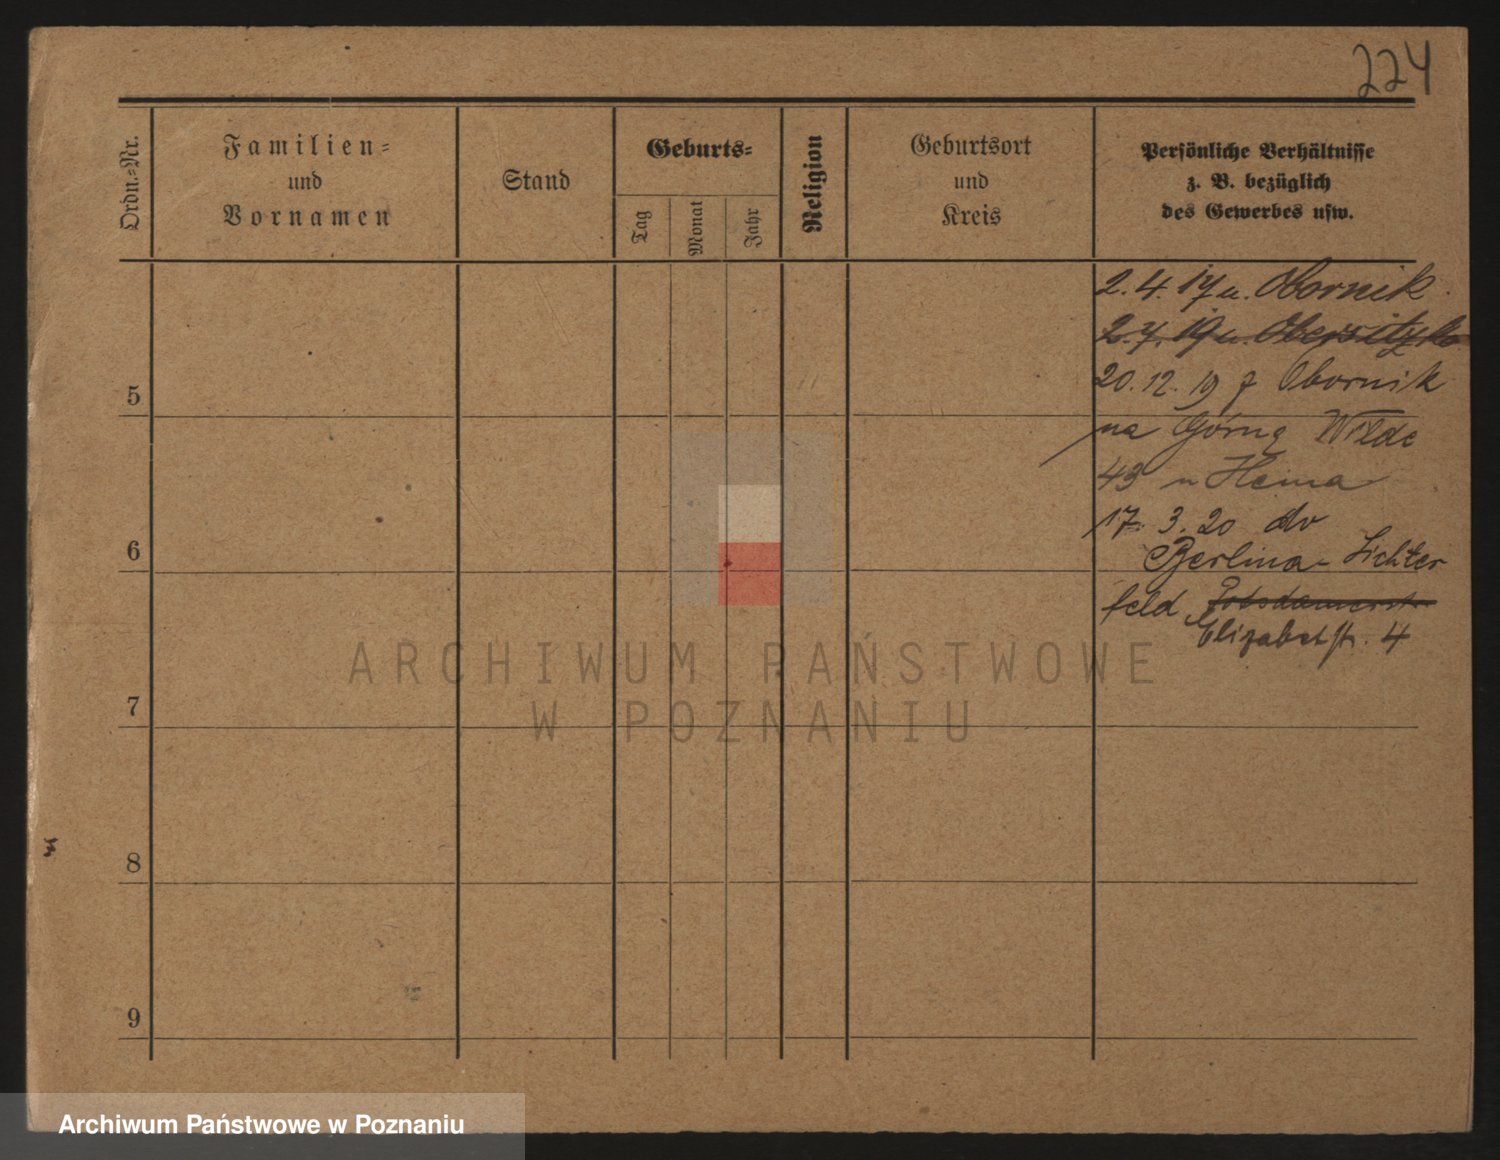 224
Ordn.-Nr.
Familien-
und
Vornamen
Stand
Geburts-
Tag
Monat
Jahr
Religion
Geburtsort
und
Kreis
Persönliche Verhältnisse
z. B. bezüglich
des Gewerbes usw.
2. 4. 17 n. Obornik
2. 7. 19 n. Obersitzko
20. 12. 19 z Obornik
5
na Górną Wilde
43 u Heina
17. 3. 20 do
6
Berlina-Lichter
feld Potsdamerstr
Elizabetstr. 4
7
8
9
ARCHIWUM PAŃSTWOWE
W POZNANIU
Archiwum Państwowe w Poznaniu